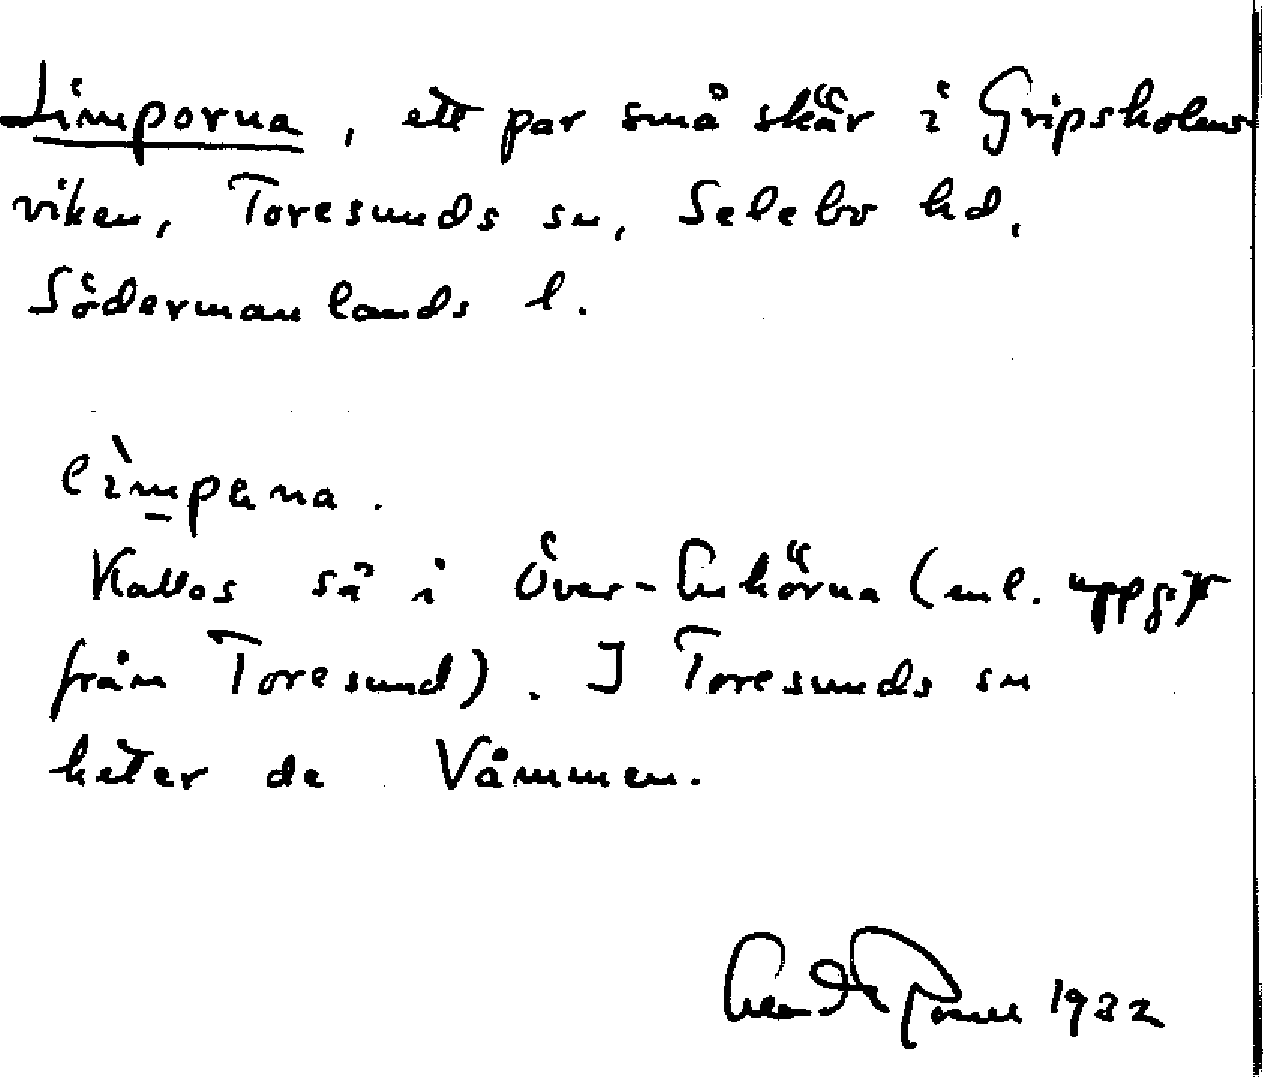 Limporna, ett par små skär i Gripsholms-
viken, Toresunds sn, Selebo hd,
Södermanlands l.
lìmpana.
Kallas så i Över-Enhörna (enl. uppgift
från Toresund). I Toresunds sn
heter de Våmmen.
1932